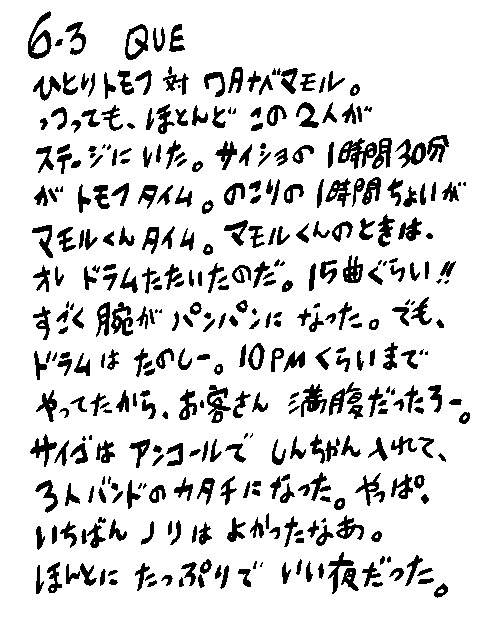 6.3 QUE
ひとりトモフ対ワタナベマモル。
っつっても、ほとんどこの2人が
ステージにいた。サイショの1時間30分
がトモフタイム。のこりの1時間ちょいが
マモルくんタイム。マモルくんのときは、
オレドラムたたいたのだ。15曲ぐらい!!
すごく腕がパンパンになった。でも、
ドラムはたのしー。10PMくらいまで
やってたから、お客さん満腹だったろー。
サイゴはアンコールでしんちゃん入れて、
3人バンドのカタチになった。やっぱ、
いちばんノリはよかったなあ。
ほんとにたっぷりでいい夜だった。